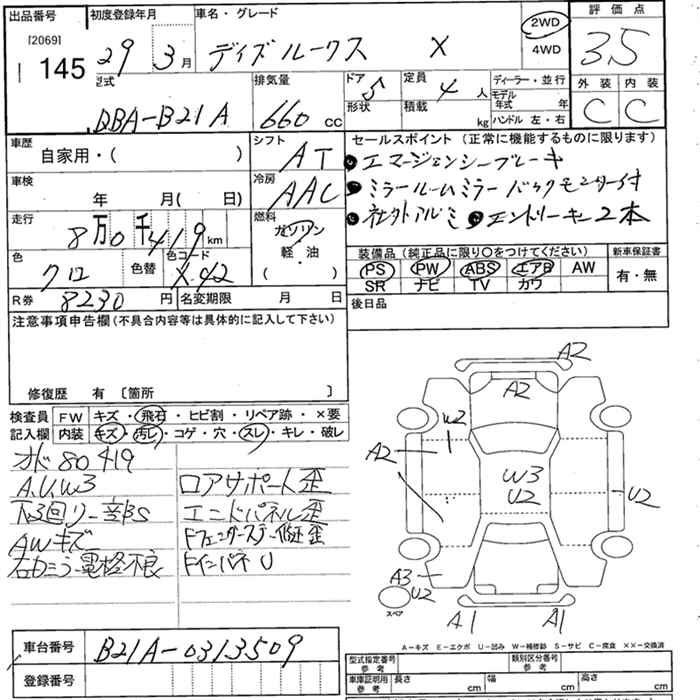 出品番号 [2069] 145
初度登録年月 29 3月
車名・グレード デイズルークス X
2WD 4WD
評価点 3.5
外装 C 内装 C
型式 DBA-B21A
排気量 660 cc
ドア 5 形状
定員 4人 積載 kg
ディーラー・並行
モデル年式 年
ハンドル 左・右
車歴 自家用・( )
シフト AT
車検 年 月( 日)
冷房 AAC
走行 8万0千419km
燃料 ガソリン 軽・油 ( )
色 クロ 色替 色コード X42
R券 8230円 名変期限 月 日
セールスポイント (正常に機能するものに限ります)
●エマージェンシーブレーキ
●ミラールームミラーバックモニター付
●社外アルミ ●エンドリーキー2本
装備品 (純正品に限り〇をつけてください)
PS PW ABS エアB AW
SR ナビ TV カワ
新車保証書 有・無
後日品
注意事項申告欄 (不具合内容等は具体的に記入して下さい)
修復歴 有 〔箇所 〕
検査員記入欄
FW キズ・飛石・ヒビ割・リペア跡・×要
内装 キズ・汚レ・コゲ・穴・スレ・キレ・破レ
オド80419
A.U.W3
下回リ一部S
AWキズ
右カミラー電格不良
ロアサポート歪
エンドパネル歪
Fフェンダーステー修正歪
FインパネU
A2
A2
U2
A2
W3
U2
U2
A3
U2
スペア
A1 A1
A-キズ E-エクボ U-凹み W-補修跡 S-サビ C-腐食 ××-交換済
車台番号 B21A-0313509
登録番号
型式指定番号 参考
類別区分番号 参考
車庫証明用 参考 長さ cm 幅 cm 高さ cm